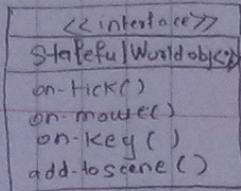 <<interface>>
Stateful|Worldobj<>>
on-tick()
on-mouse()
on-key()
add-toscene()